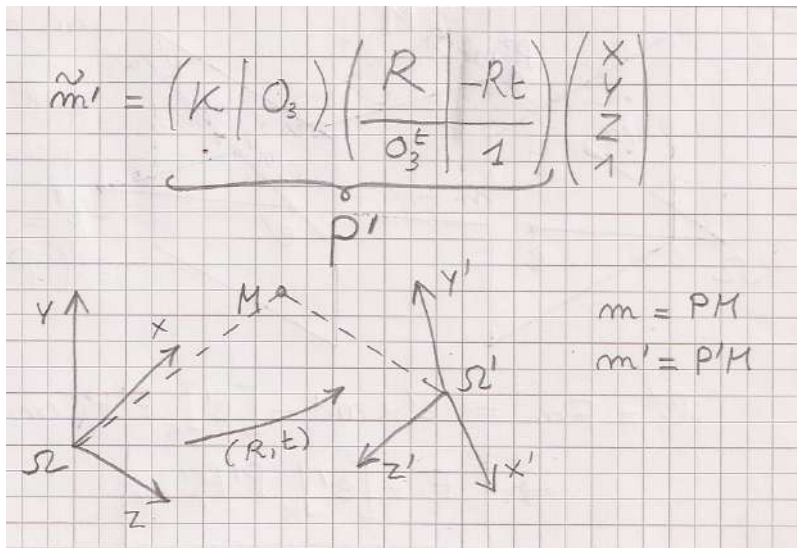 m̃' = (K | O₃) (R | -Rt / O₃ᵗ | 1) (X Y Z 1)
P'
Y X M Y'
m = PM
m' = P'M
Ω (R,t) Ω'
Z Z' X'